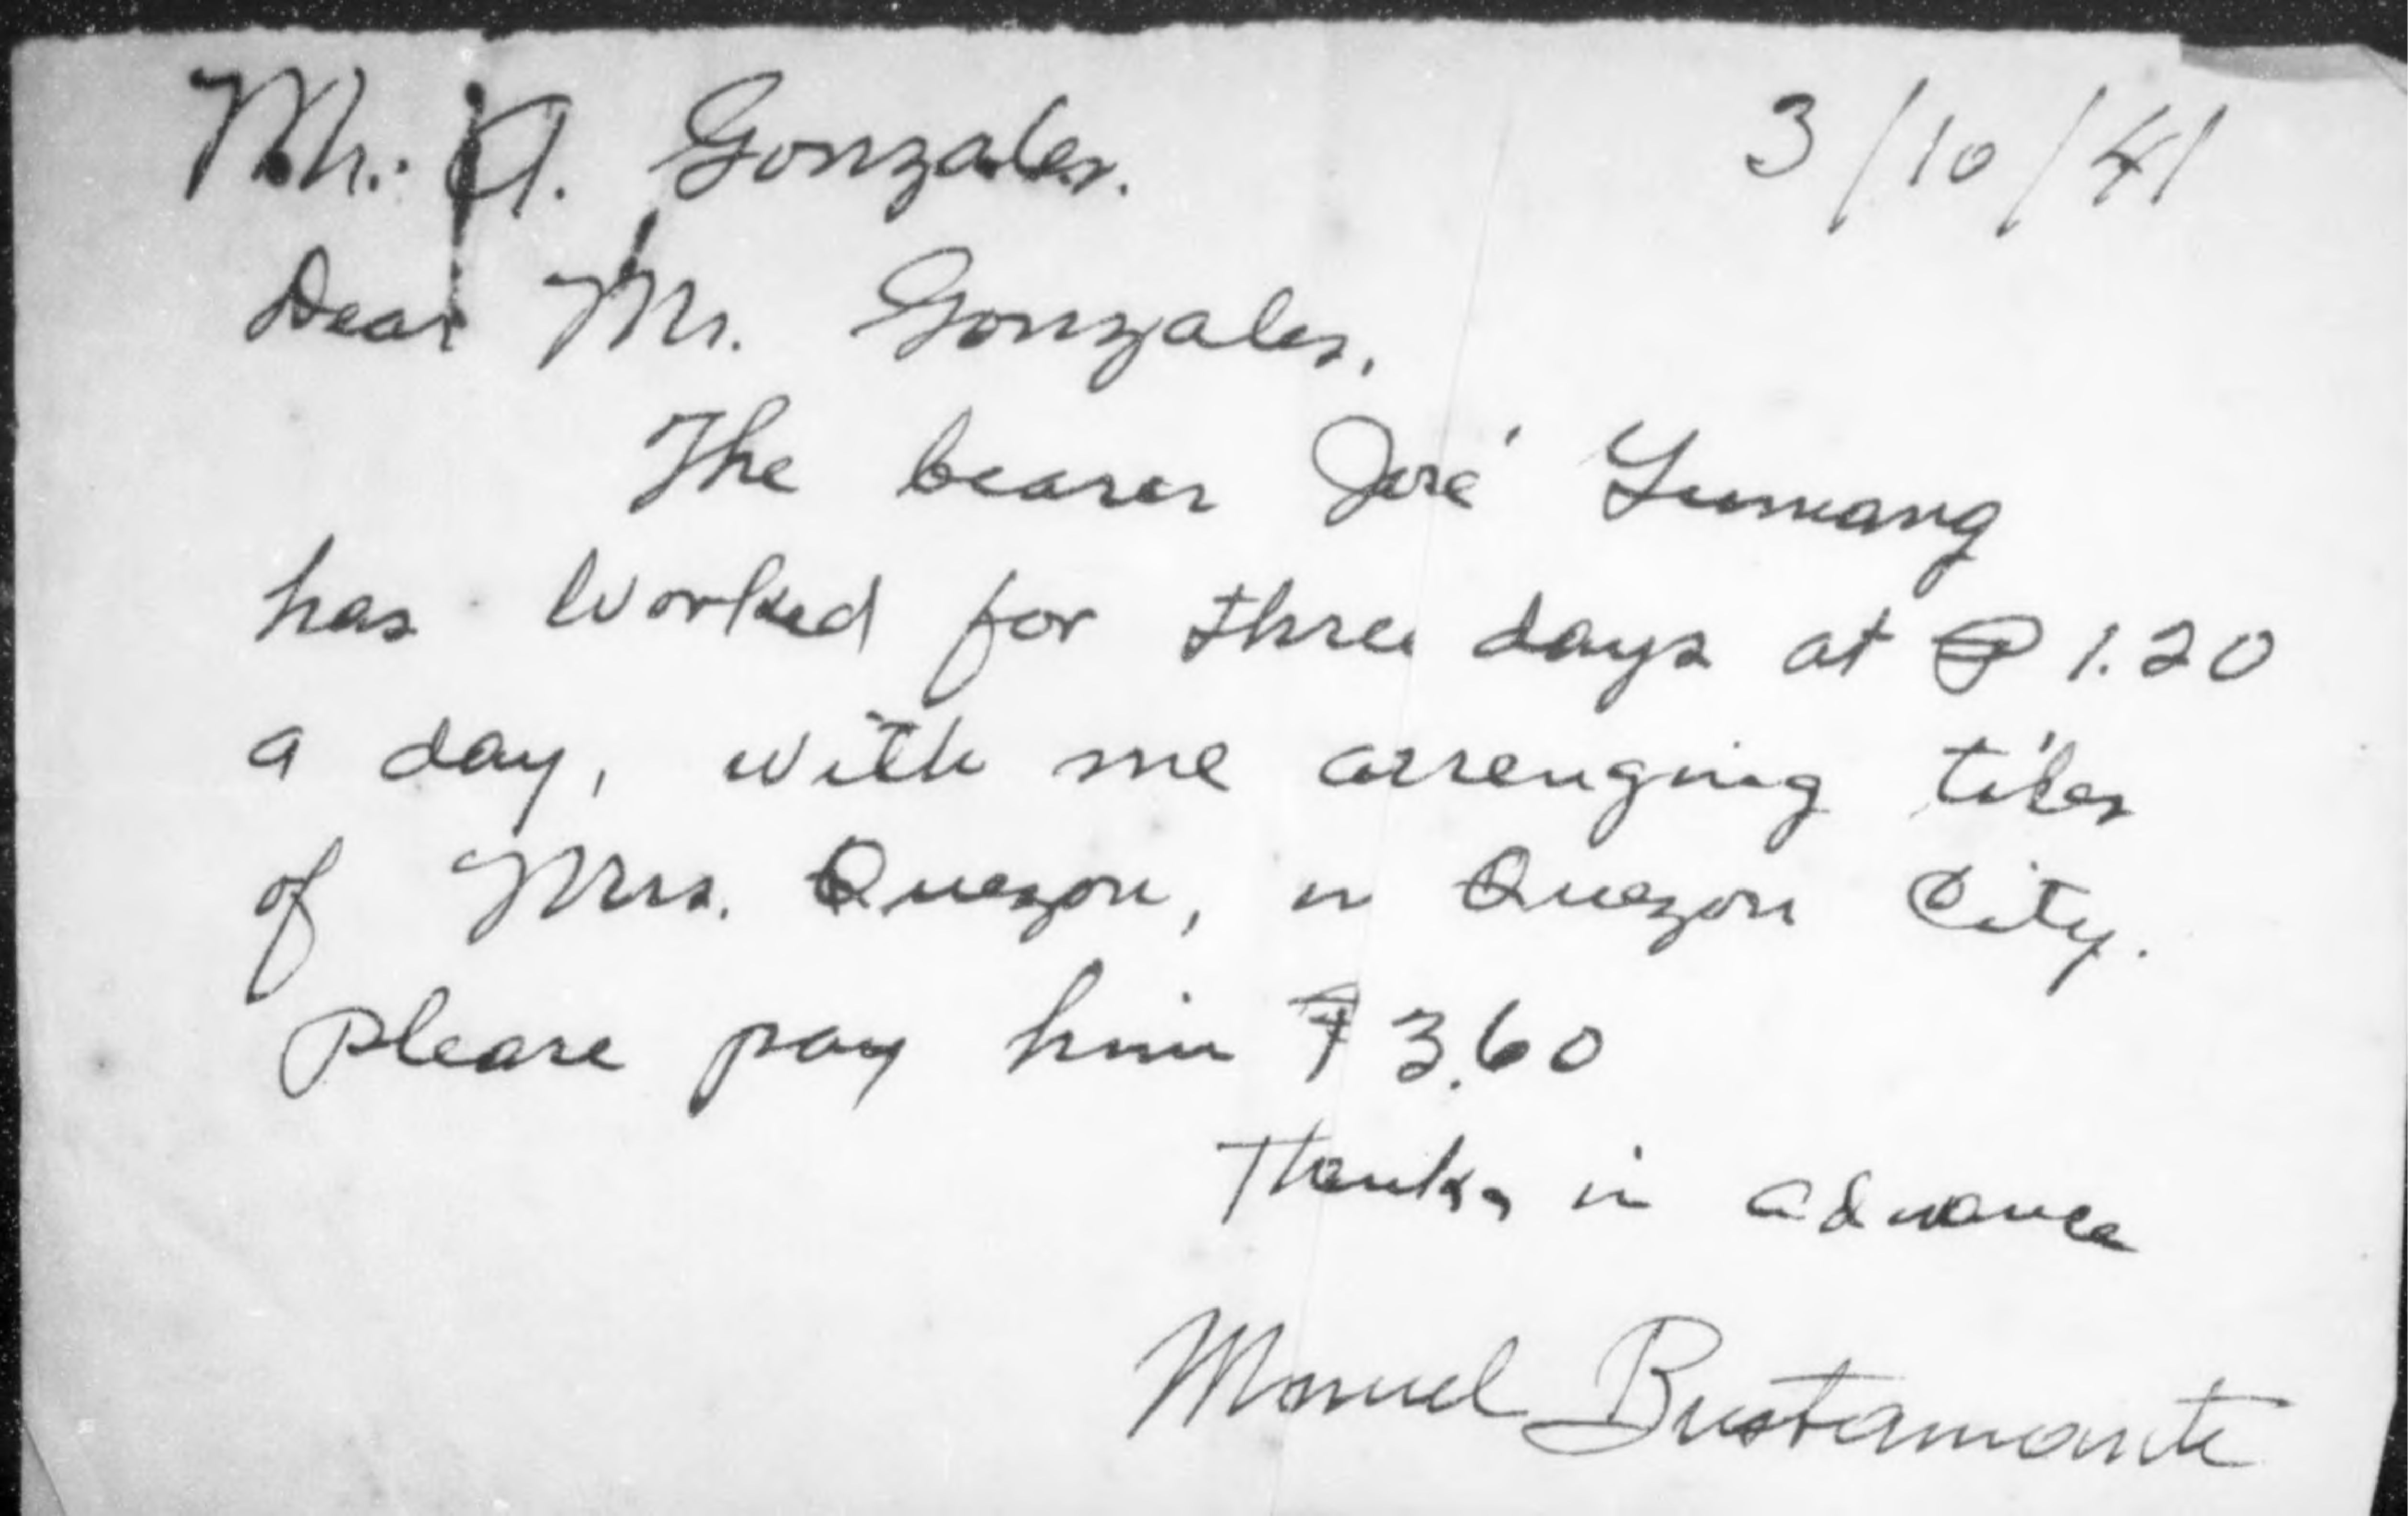 Mr. A. Gonzales. 3/10/41
Dear Mr. Gonzales,
The bearer José Yumang
has worked for three days at ₱ 1.20
a day, with me arrenging tiles
of Mrs. Quezon, in Quezon City.
Please pay him ₱ 3.60
Thanks in advance
Manuel Bustamante